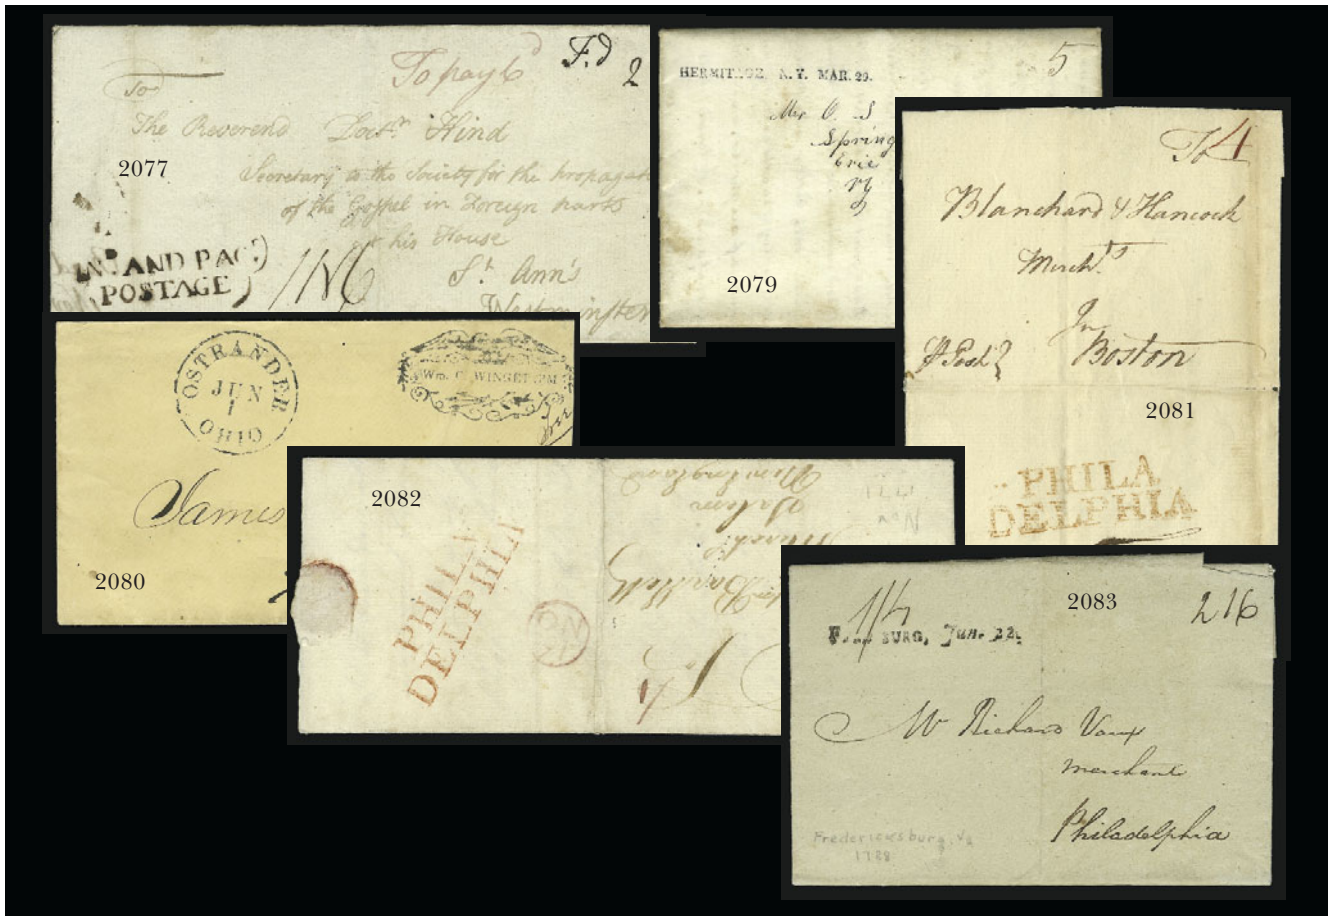 To pay 6d
F.d
2
To
The Reverend Doctr Hind
2077
Secretary to the Society for the propagat
of the Gospel in Foreign parts
at his House
St Ann's
Westminster
AND PAC
POSTAGE
HERMITAGE, N.Y. MAR. 29.
5
Mr O. S
Spring
Erie
2079
To 4
Blanchard & Hancock
Mercht's
In
Boston
2081
PHILA
DELPHIA
OSTRANDER
JUN
1
OHIO
Wm. C. WINGET P.M.
James
2080
2082
PHILA
DELPHIA
New England
Salem
Bartlett
2083
1/4
216
BURG,
22.
Mr Richard Vaux
merchant
Philadelphia
Fredericksburg, Va
1788